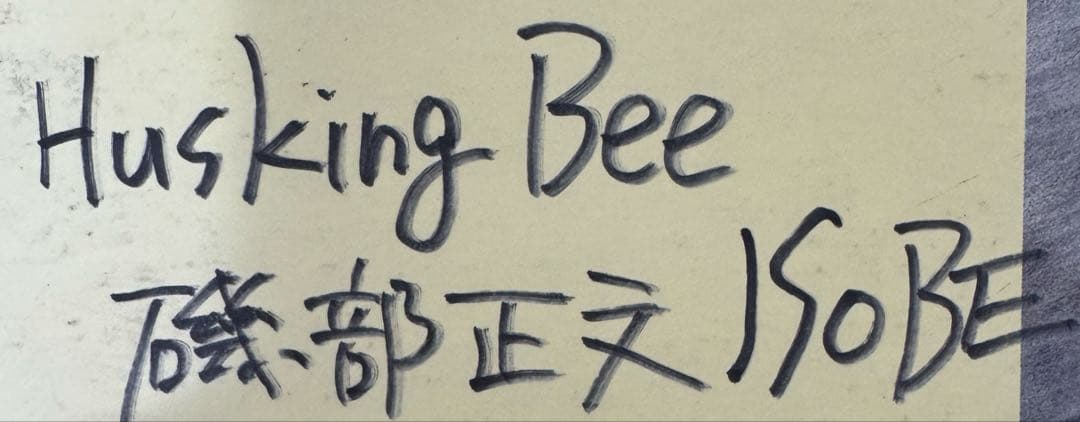 Husking Bee
磯部正文 ISOBE